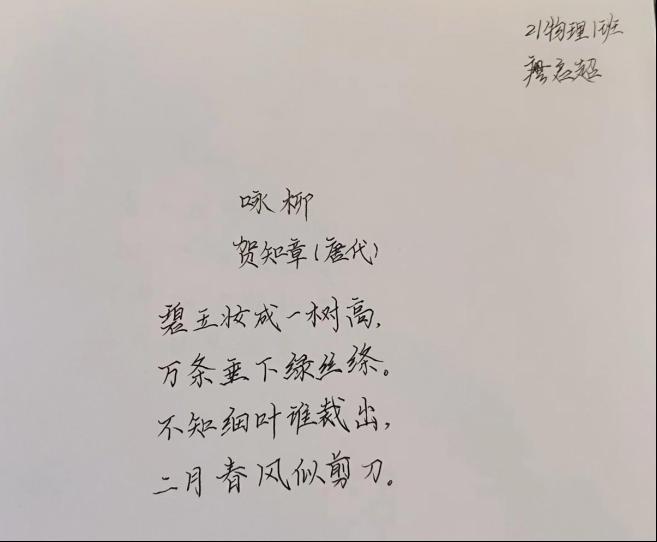 21物理1班
咏柳
贺知章(唐代)
碧玉妆成一树高,
万条垂下绿丝绦。
不知细叶谁裁出,
二月春风似剪刀。